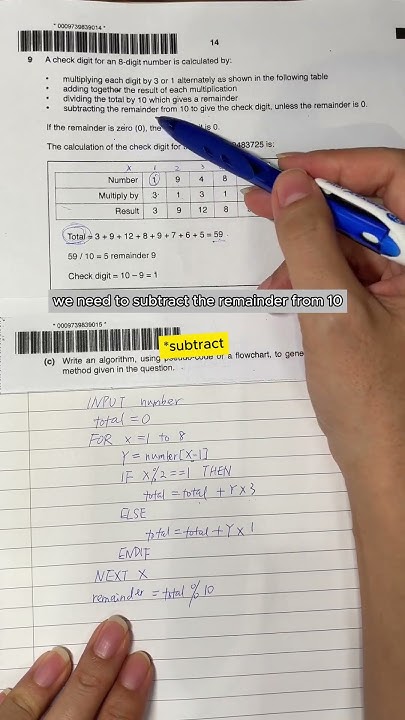 * 0009739839014 *
14
9 A check digit for an 8-digit number is calculated by:
• multiplying each digit by 3 or 1 alternately as shown in the following table
• adding together the result of each multiplication
• dividing the total by 10 which gives a remainder
• subtracting the remainder from 10 to give the check digit, unless the remainder is 0.
If the remainder is zero (0), the is 0.
The calculation of the check digit for 9483725 is:
X 1 2 3
Number 1 9 4 8
Multiply by 3 1 3 1
Result 3 9 12 8
Total = 3 + 9 + 12 + 8 + 9 + 7 + 6 + 5 = 59
59 / 10 = 5 remainder 9
Check digit = 10 – 9 = 1
we need to subtract the remainder from 10
* 0009739839015 *
*subtract
(c) Write an algorithm, using pseudo-code or a flowchart, to gene
method given in the question.
INPUT number
total = 0
FOR x = 1 to 8
Y = number[x-1]
IF x%2==1 THEN
total = total + Y x 3
ELSE
total = total + Y x 1
ENDIF
NEXT X
remainder = total % 10